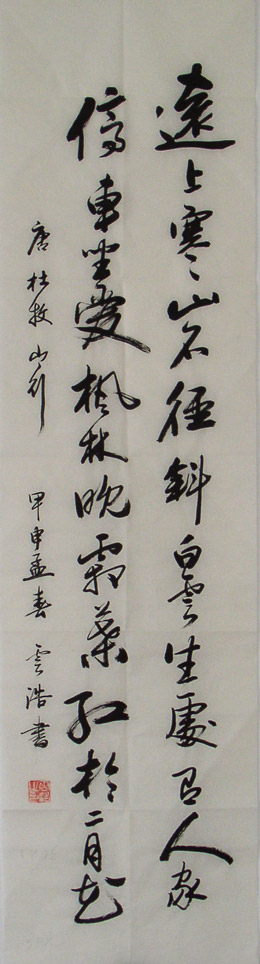 遠上寒山石徑斜白雲生處有人家
停車坐愛楓林晚霜葉紅於二月花
唐杜牧山行 甲申孟春 雲浩書